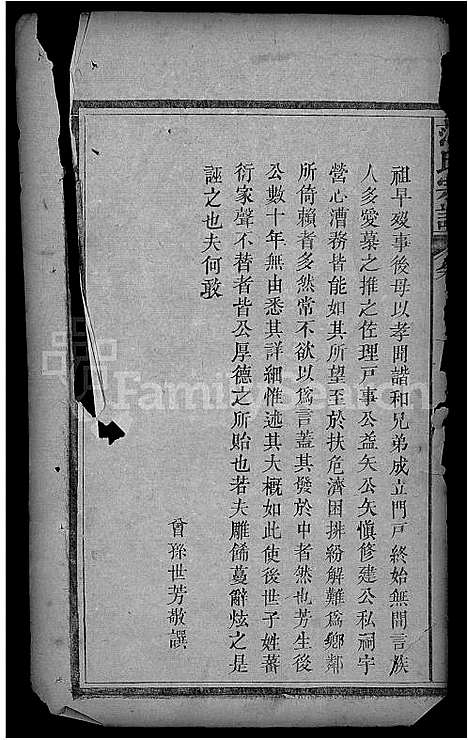 范氏宗譜
祖早歿事後母以孝聞諧和兄弟成立門戶終始無間言族
人多愛慕之推之佐理戶事公益矢公矢愼修建公私祠宇
營心漕務皆能如其所望至於扶危濟困排紛解難爲鄉鄰
所倚賴者多然常不欲以爲言蓋其發於中者然也芳生後
公數十年無由悉其詳細惟述其大概如此使後世子姓蕃
衍家聲不替者皆公厚德之所貽也若夫雕餙蔓辭炫之是
誣之也夫何敢
曾孫世芳敬譔
FamilySearch